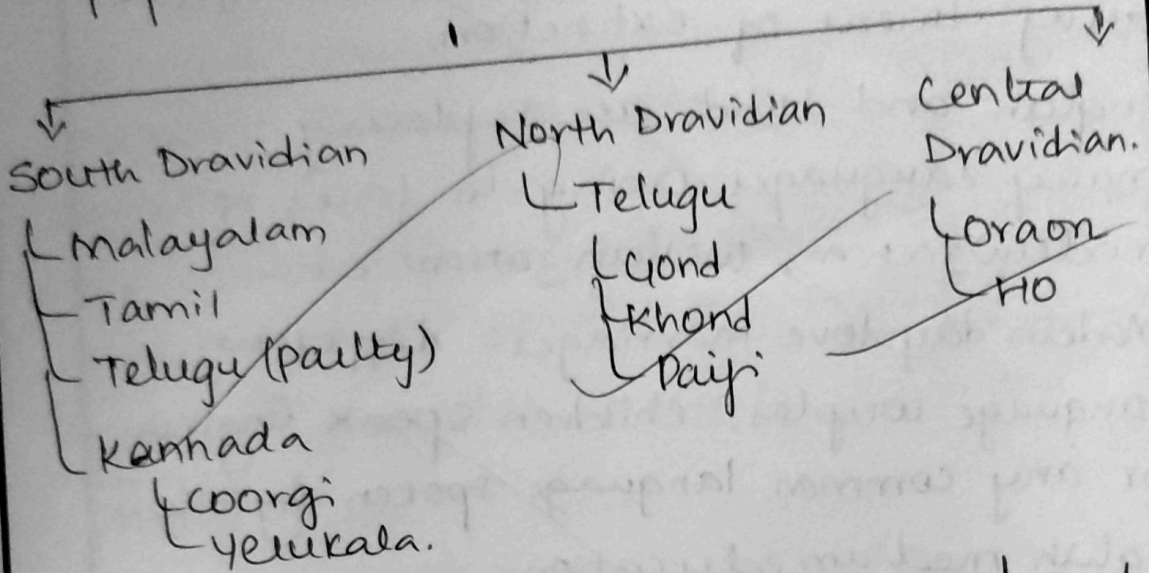 South Dravidian
Malayalam
Tamil
Telugu (partly)
Kannada
Coorgi
Yelukala.
North Dravidian
Telugu
Gond
Khond
Central
Dravidian.
Oraon
HO